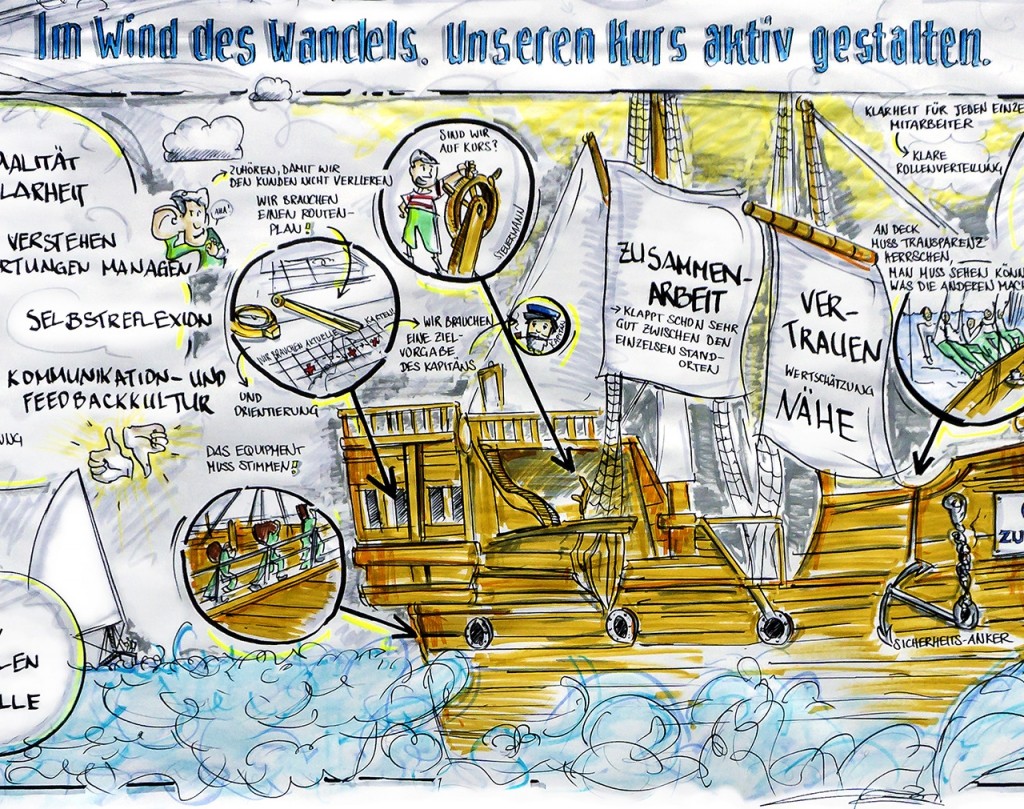 Im Wind des Wandels. Unseren Kurs aktiv gestalten.
ALITÄT
LARHEIT
VERSTEHEN
RTUNGEN MANAGEN
SELBSTREFLEXION
KOMMUNIKATION- UND
FEEDBACKKULTUR
UNG
LEN
LLE
ZUHÖREN, DAMIT WIR
DEN KUNDEN NICHT VERLIEREN
AHA!
WIR BRAUCHEN
EINEN ROUTEN-
PLAN!!
WIR BRAUCHEN AKTUELLE
KARTEN
UND
ORIENTIERUNG
WIR BRAUCHEN
EINE ZIEL-
VORGABE
DES KAPITÄNS
KAPITÄN
SIND WIR
AUF KURS?
STEUERMANN
DAS EQUIPMENT
MUSS STIMMEN!!
ZUSAMMEN-
ARBEIT
KLAPPT SCHON SEHR
GUT ZWISCHEN DEN
EINZELSEN STAND-
ORTEN
VER-
TRAUEN
WERTSCHÄTZUNG
NÄHE
KLARHEIT FÜR JEDEN EINZE
MITARBEITER
KLARE
ROLLENVERTEILUNG
AN DECK
MUSS TRANSPARENZ
HERRSCHEN,
MAN MUSS SEHEN KÖNN
WAS DIE ANDEREN MAC
ZU
SICHERHEITS-ANKER